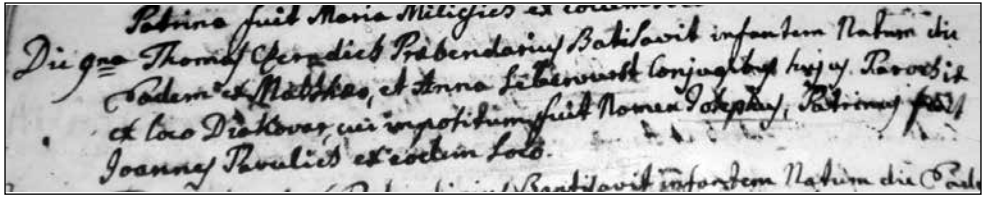 Patrina fuit Maria Milisich ex eodem
Die 9na Thomas Prabendarius Batisavit infantem Natum die
Eadem ex Matthæo, et Anna Leberwurst Conjugibus hujus Parochiæ
ex loco Diakovar, cui impositum fuit Nomen Josephus, Patrinus fuit
Joannes Pavulich ex eodem Loco.
Baptisavit infantem Natum die Eade